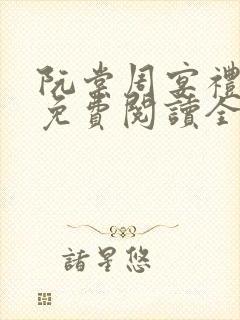 阮棠周宴禮
免費閱讀全
諸星悠